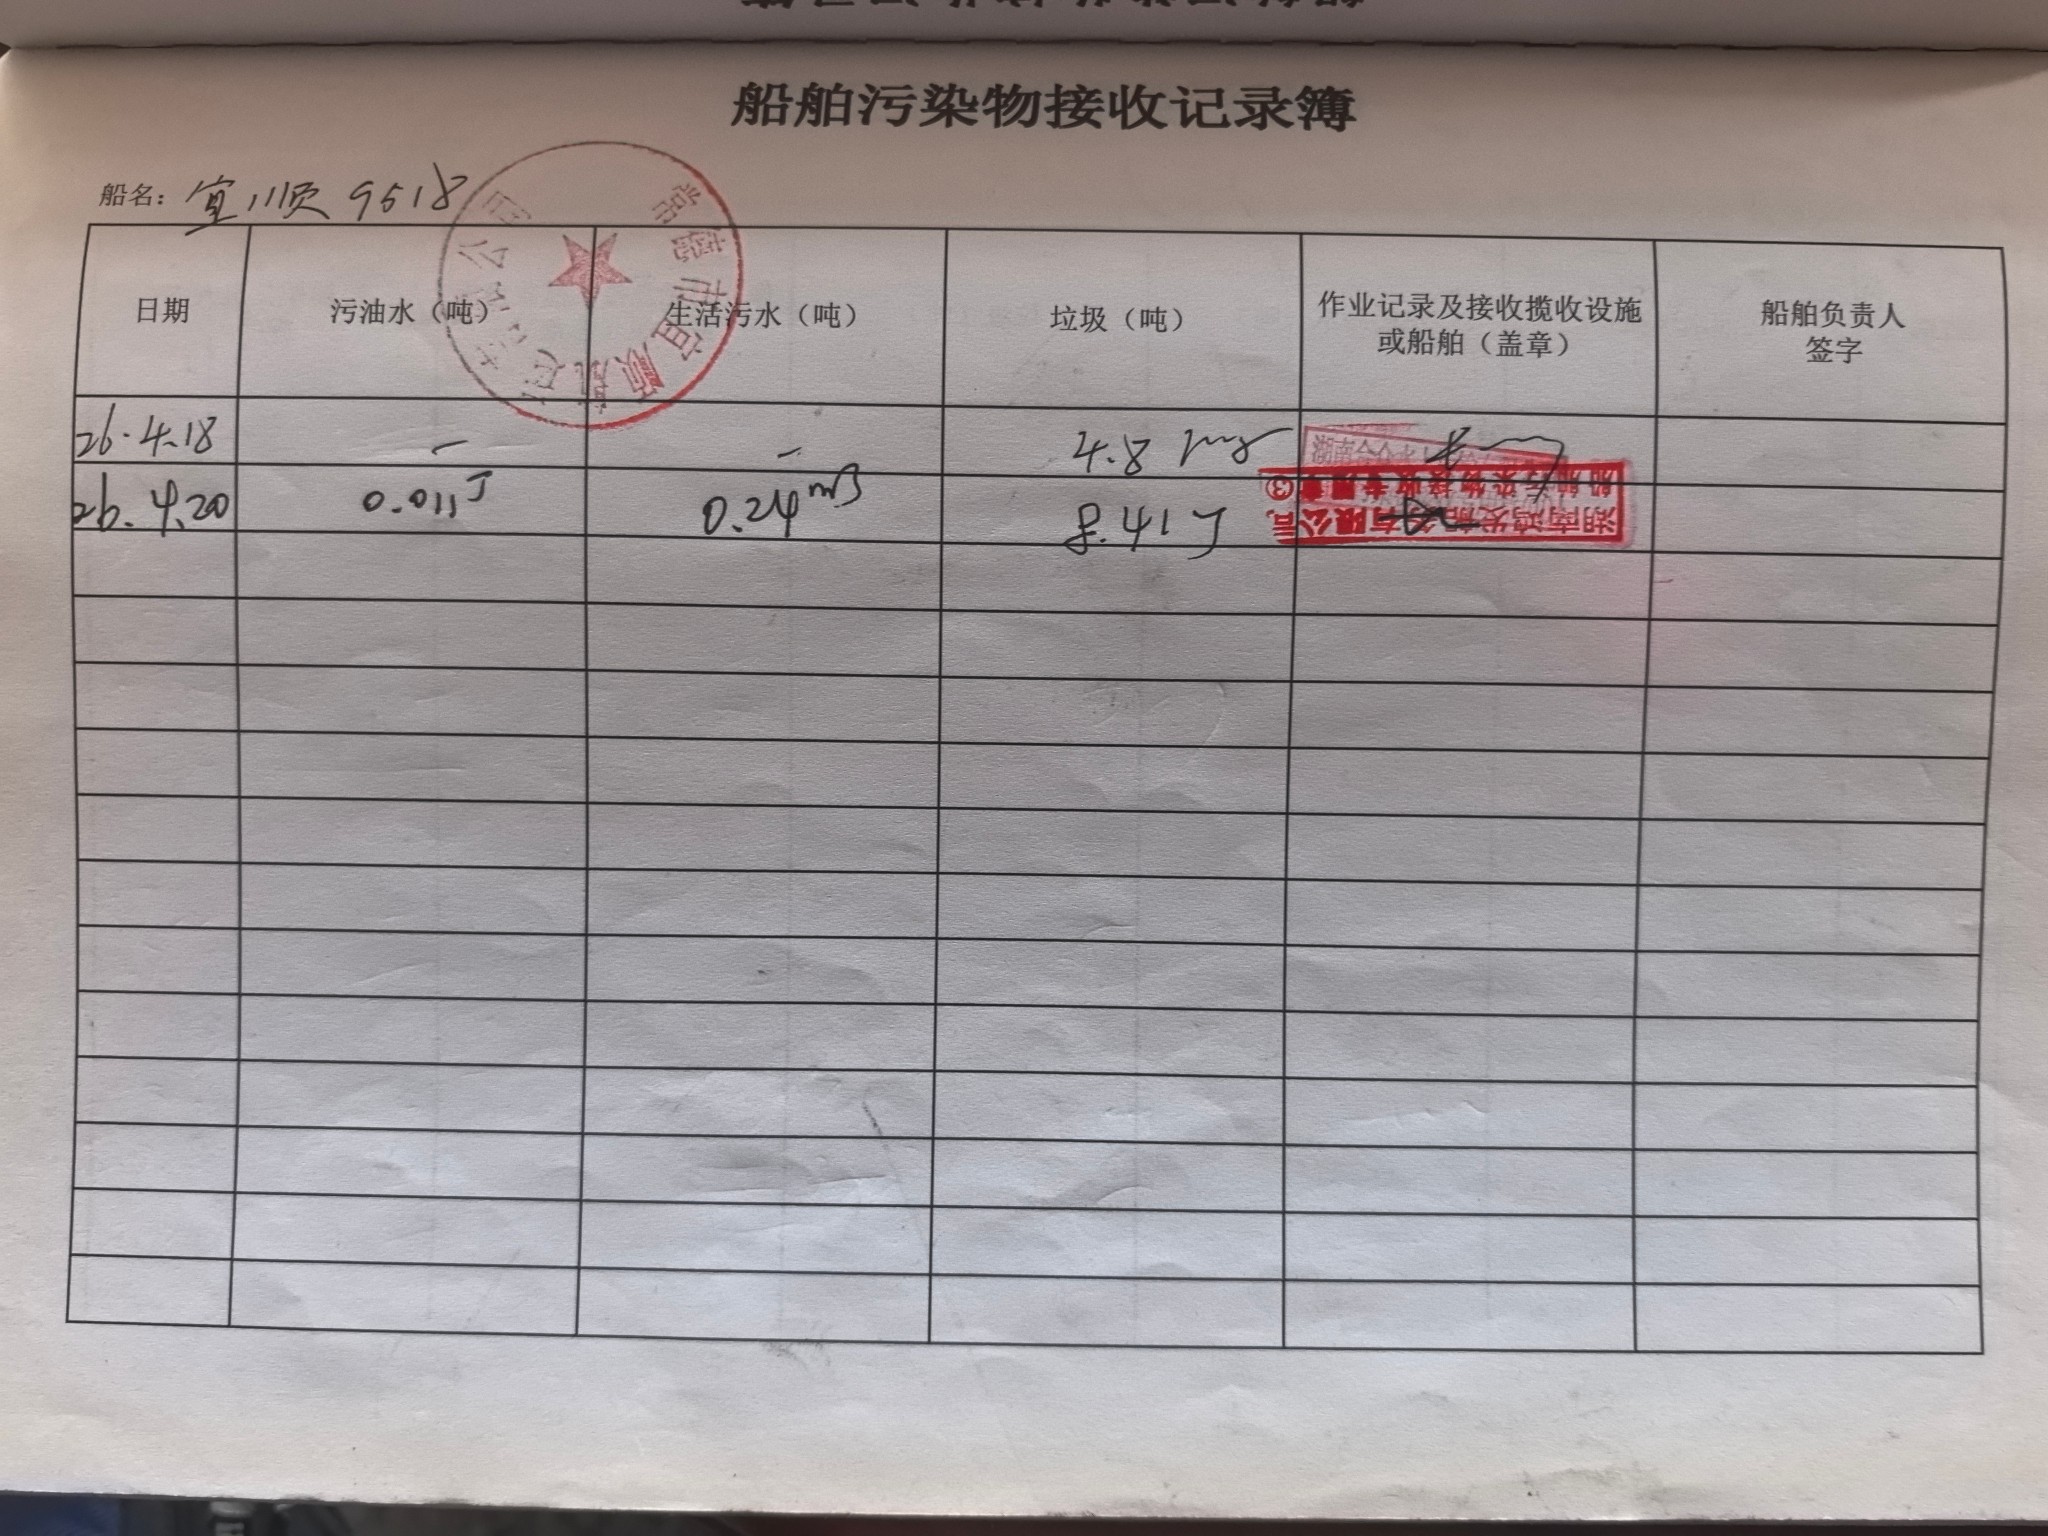 船舶污染物接收记录簿
船名：宜川顺 9518
日期 污油水（吨） 生活污水（吨） 垃圾（吨） 作业记录及接收揽收设施或船舶（盖章） 船舶负责人签字
常德市宜顺航 公司
26.4.18 — — 4.8
26.4.20 0.011J 0.24m³ 8.41J
船舶污染物接收专用章③
湖南鸿发 有限公司